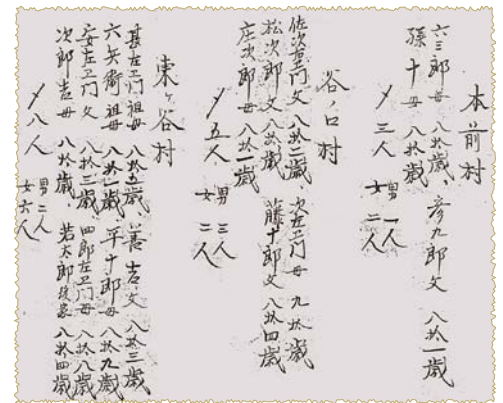 本前村
六三郎母 八拾歳、彦九郎父 八拾一歳
孫十母 八拾歳
〆三人 男一人
女二人
谷ノ口村
佐次右ヱ門父 八拾二歳、次左ヱ門母 九拾歳
松次郎父 八拾歳 藤十郎父 八拾四歳
庄次郎母 八拾一歳
〆五人 男三人
女二人
東ヶ谷村
甚左ヱ門祖母 八拾五歳、善吉父 八拾三歳
六兵衛祖母 八拾一歳 平十郎母 八拾九歳
安左ヱ門父 八拾三歳 四郎左ヱ門母 八拾八歳
次郎吉母 八拾歳、若太郎 八拾四歳
〆八人 男二人
女六人